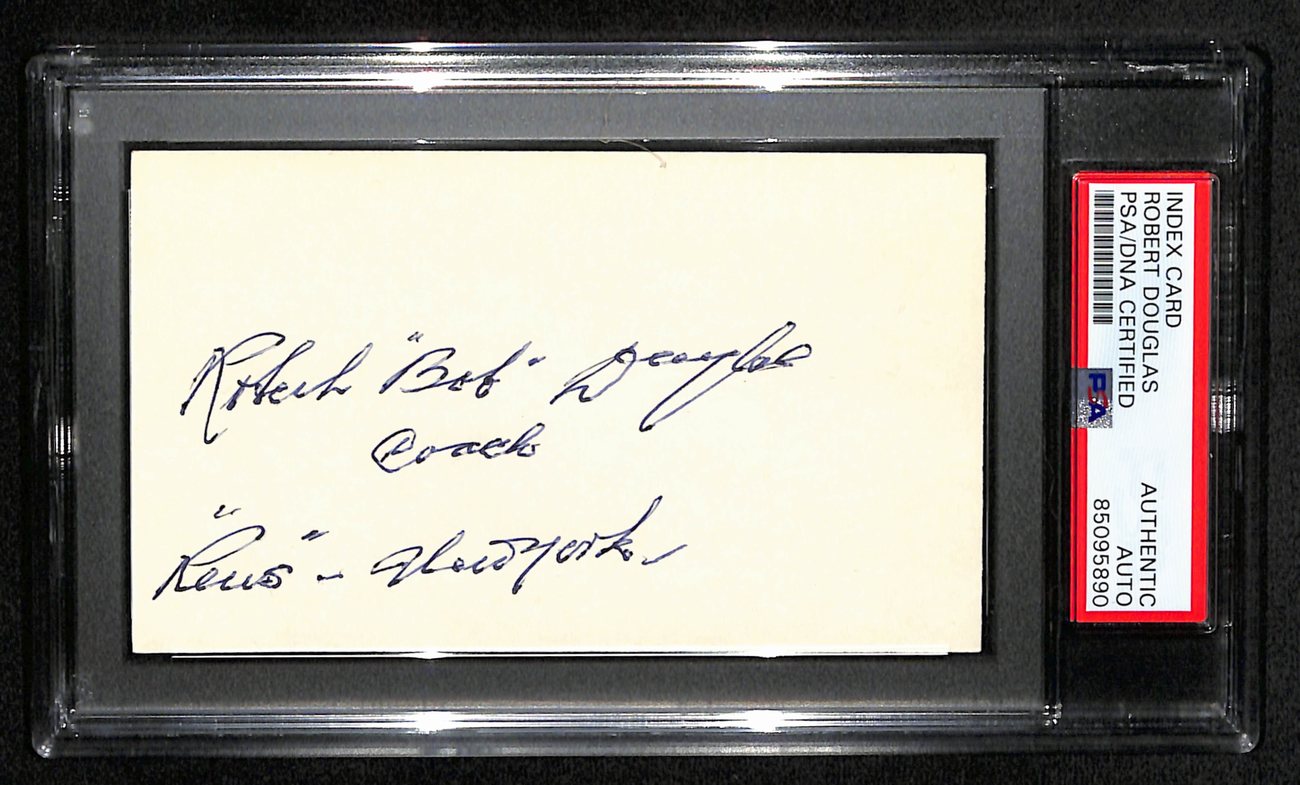 Robert "Bob" Douglas
Coach
"Rens" - New York -
INDEX CARD
ROBERT DOUGLAS
PSA/DNA CERTIFIED
PSA
AUTHENTIC
AUTO
85095890